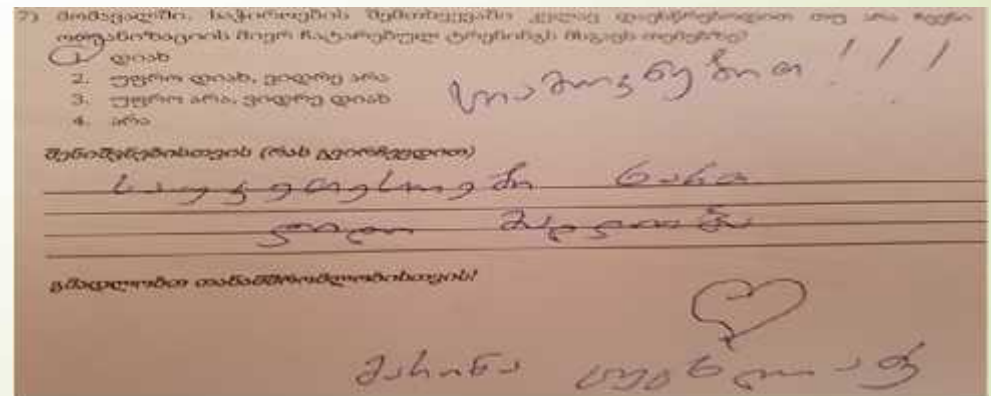 7) მომავალში, საჭიროების შემთხვევაში კვლავ დაესწრებოდით თუ არა ჩვენი
ორგანიზაციის მიერ ჩატარებულ ტრენინგს მსგავს თემებზე?
1. დიახ
2. უფრო დიახ, ვიდრე არა
3. უფრო არა, ვიდრე დიახ
4. არა
სიამოვნებით!!!
შენიშვნებისთვის (რას გვირჩევდით)
საუკეთესოები ხართ
დიდი მადლობა
გმადლობთ თანამშრომლობისთვის!
მარინა